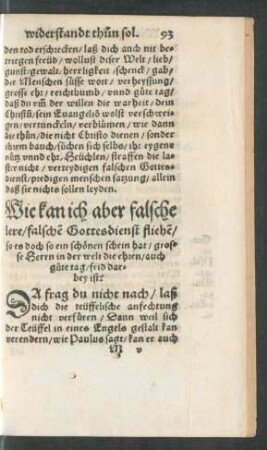 widerstandt thůn sol. 93
den tod erschrecken/ laß dich auch nit be-
triegen freüd/ wollust diser Welt/ lieb/
gunst/ gewalt/ herrligkeit/ schenck/ gab/
der Menschen süsse wort/ verheyssung/
grosse ehr/ reichthumb/ vnnd gůte tag/
daß du vm̃ der willen die warheit/ dein
Christũ/ sein Euangeliõ wolst verschwei-
gen/ vertunckeln/ verblümen/ wie dann
die thůn/ die nicht Christo dienen/ sonder
ihrem bauch/ sůchen sich selbs/ ihr eygenẽ
nütz vnnd ehr. Heüchlen/ straffen die la-
ster nicht/ verteydigen falschen Gottes-
dienst/ predigen menschen satzung/ allein
daß sie nichts sollen leyden.
Wie kan ich aber falsche
lere/ falschẽ Gottesdienst fliehẽ/
so es doch so ein schönen schein hat/ gros-
se Herrn in der welt die ehren/ auch
gůte tag/ frid dar-
bey ist?
DA frag du nicht nach/ laß
dich die teüffelische anfechtung
nicht verfüren/ Dann weil sich
der Teüffel in eines Engels gestalt kan
verendern/ wie Paulus sagt/ kan er auch
M v